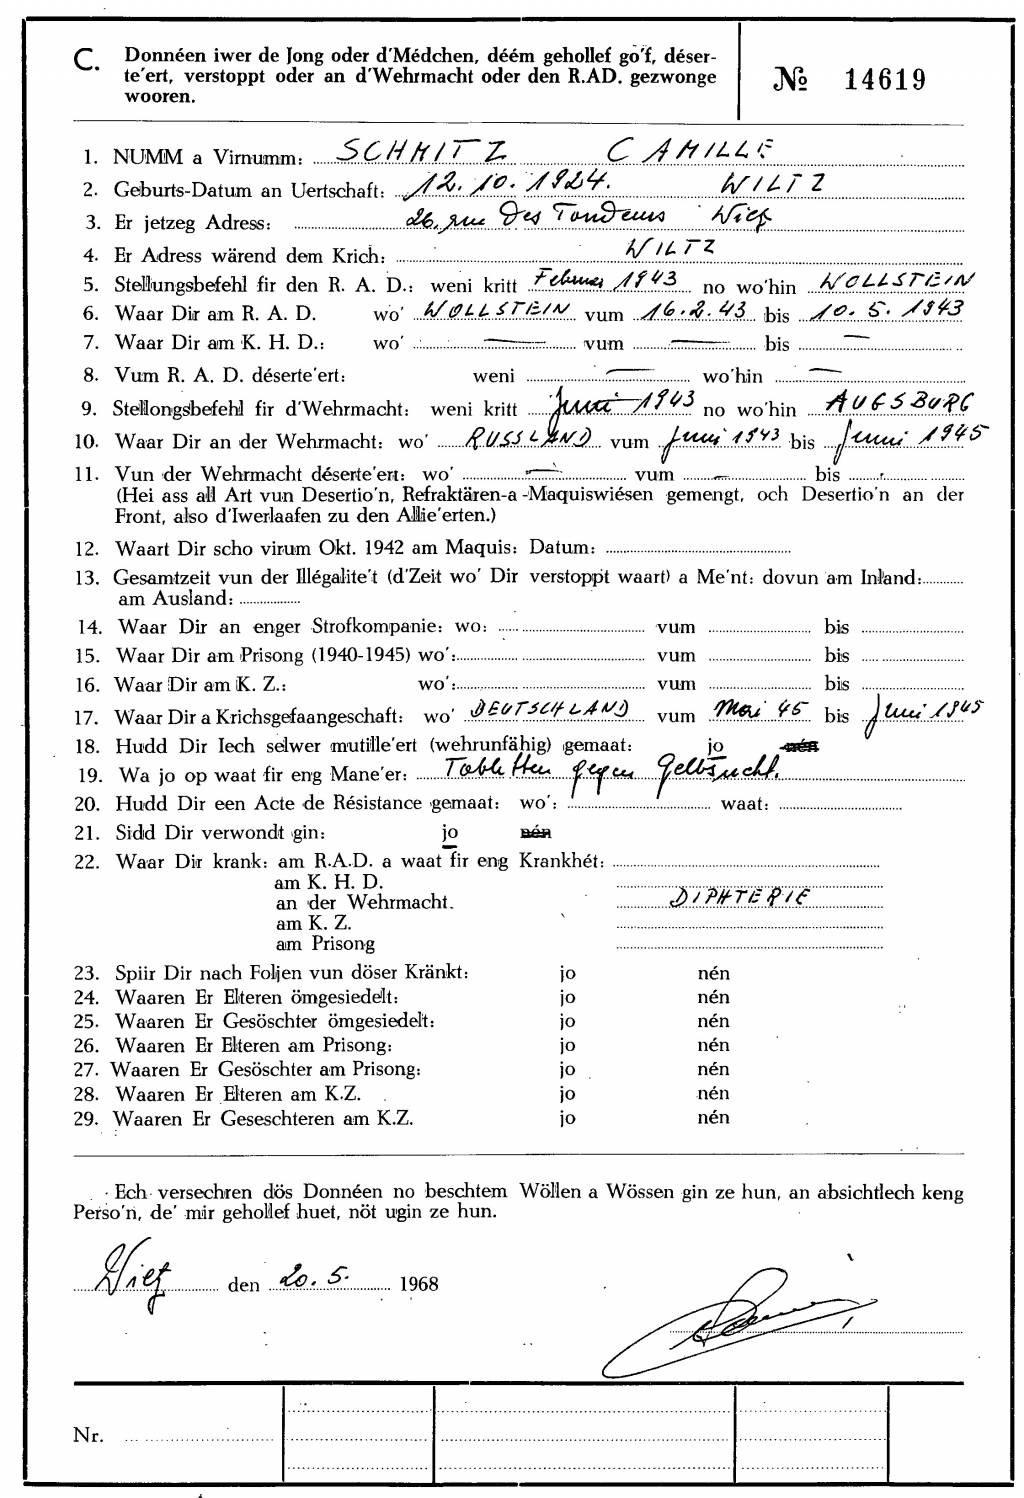 C. Donnéen iwer de Jong oder d'Médchen, déém gehollef go'f, déser-
te'ert, verstoppt oder an d'Wehrmacht oder den R.AD. gezwonge
wooren.
№ 14619
1. NUMM a Virnumm: SCHMITZ CAMILLE
2. Geburts-Datum an Uertschaft: 12.10.1924. WILTZ
3. Er jetzeg Adress: 26, rue Des Tondeurs Wiltz
4. Er Adress wärend dem Krich: WILTZ
5. Stellungsbefehl fir den R. A. D.: weni kritt Februar 1943 no wo'hin WOLLSTEIN
6. Waar Dir am R. A. D. wo' WOLLSTEIN vum 16.2.43 bis 10. 5. 1943
7. Waar Dir am K. H. D.: wo' — vum — bis —
8. Vum R. A. D. déserte'ert: weni — wo'hin —
9. Stellongsbefehl fir d'Wehrmacht: weni kritt Juni 1943 no wo'hin AUGSBURG
10. Waar Dir an der Wehrmacht: wo' RUSSLAND vum Juni 1943 bis Juni 1945
11. Vun der Wehrmacht déserte'ert: wo' — vum — bis
(Hei ass all Art vun Desertio'n, Refraktären-a-Maquiswiésen gemengt, och Desertio'n an der
Front, also d'Iwerlaafen zu den Allie'erten.)
12. Waart Dir scho virum Okt. 1942 am Maquis: Datum:
13. Gesamtzeit vun der Illégalite't (d'Zeit wo' Dir verstoppt waart) a Me'nt: dovun am Inland:
am Ausland:
14. Waar Dir an enger Strofkompanie: wo: vum bis
15. Waar Dir am Prisong (1940-1945) wo': vum bis
16. Waar Dir am K. Z.: wo': vum bis
17. Waar Dir a Krichsgefaangeschaft: wo' DEUTSCHLAND vum Mai 45 bis Juni 1945
18. Hudd Dir Iech selwer mutille'ert (wehrunfähig) gemaat: jo nén
19. Wa jo op waat fir eng Mane'er: Tabletten gegen Gelbsucht.
20. Hudd Dir een Acte de Résistance gemaat: wo': waat:
21. Sidd Dir verwondt gin: jo nén
22. Waar Dir krank: am R.A.D. a waat fir eng Krankhét:
am K. H. D.
an der Wehrmacht. DIPHTERIE
am K. Z.
am Prisong
23. Spiir Dir nach Foljen vun döser Kränkt: jo nén
24. Waaren Er Elteren ömgesiedelt: jo nén
25. Waaren Er Gesöschter ömgesiedelt: jo nén
26. Waaren Er Elteren am Prisong: jo nén
27. Waaren Er Gesöschter am Prisong: jo nén
28. Waaren Er Elteren am K.Z. jo nén
29. Waaren Er Geseschteren am K.Z. jo nén
Ech versechren dös Donnéen no beschtem Wöllen a Wössen gin ze hun, an absichtlech keng
Perso'n, de' mir gehollef huet, nöt ugin ze hun.
Wiltz den 20. 5. 1968
Nr.